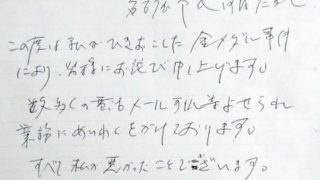 名古屋市民の皆様へ
この度は私がひきおこした金メダル事件
により、皆様にお詫び申し上げます。
数多くの電話メール 手紙等よせられ
業務にめいわくをかけております。
すべて私が悪かったことでございます。